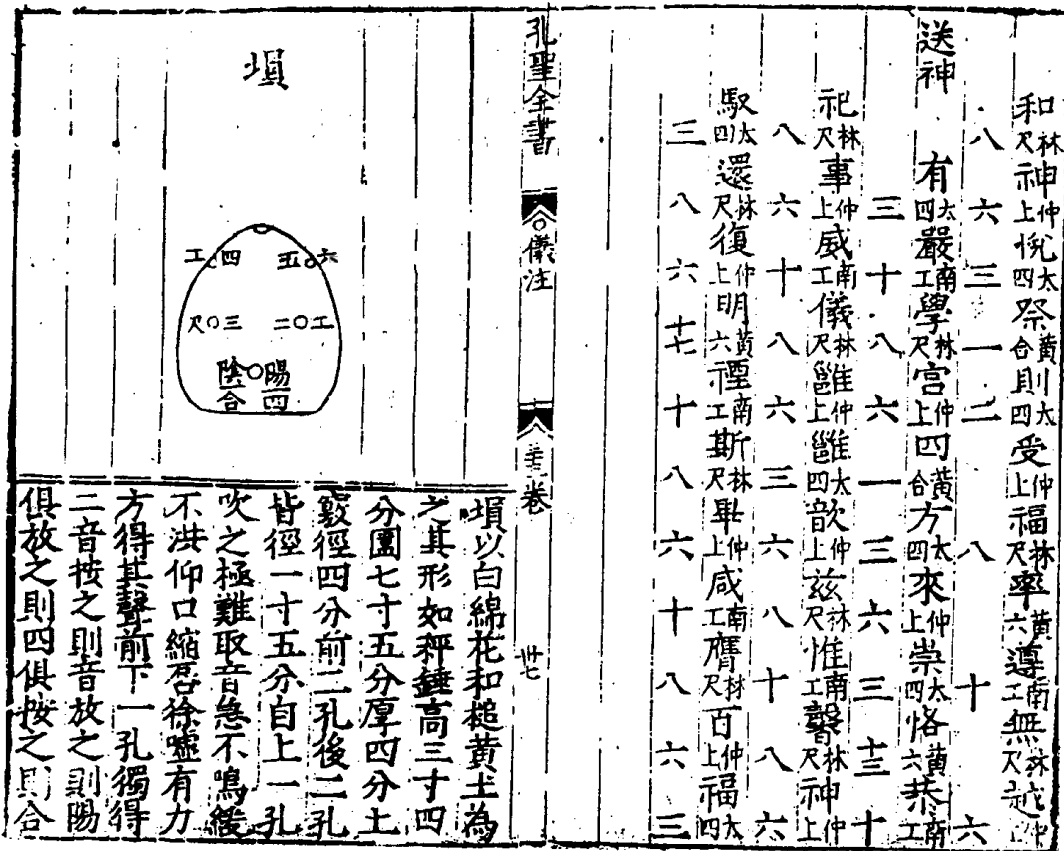 和林尺神仲上悅太四祭黃合則太四受仲上福林尺率黃六遵南工無林尺越仲上
八 六 三 一 二 八 十 六
送神 有太四嚴南工學林尺宮仲上四黃合方太四來仲上崇太四恪黃六恭南工
三 十 八 六 一 三 六 三 十三 十
祀林尺事仲上威南工儀林尺雝仲上雝太四歆仲上茲林尺惟南工馨林尺神仲上
八 六 十 八 六 三 六 八 十 八 六
馭太四還林尺復仲上明黃六禋南工斯林尺畢仲上咸南工膺林尺百仲上福太四
三 八 六 十七 十 八 六 十 八 六 三
孔聖全書 儀注 卷 卅七
塤
六 五 四 工
工 二 三 尺
陽四
陰合
塤以白綿花和槌黃土為
之其形如秤錘高三寸四
分圍七寸五分厚四分土
竅徑四分前二孔後二孔
皆徑一寸五分自上一孔
吹之極難取音急不鳴緩
不洪仰口縮唇徐噓有力
方得其聲前下一孔獨得
二音按之則音放之則陽
俱放之則四俱按之則合